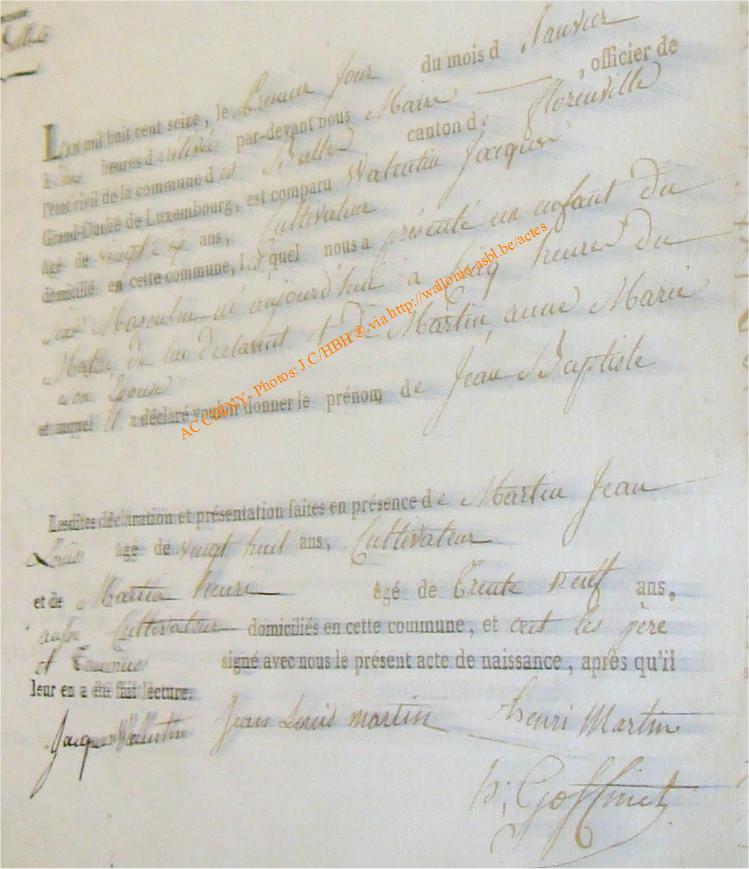 L'an mil huit cent seize, le Premier Jour du mois d Janvier
à heures de relevée par-devant nous Maire officier de
l'état civil de la commune d canton de Florenville
Grand-Duché de Luxembourg, est comparu Walentin Jacques
âgé de vingt ans, Cultivateur
domicilié en cette commune, lequel nous a présenté un enfant du
sexe Masculin né aujourd'hui à Cinq heures du
Matin de lui déclarant et de Martin anne Marie
son Epouse
et auquel il a déclaré vouloir donner le prénom de Jean Baptiste
Lesdites déclaration et présentation faites en présence de Martin Jean
Louis âgé de vingt huit ans, Cultivateur
et de Martin henri âgé de Trente neuf ans,
aussi Cultivateur domiciliés en cette commune, et ont les père
et Temoins signé avec nous le présent acte de naissance, après qu'il
leur en a été fait lecture.
Jacques Wallentin Jean Louis martin henri Martin
h; Goffinet
AC CHINY- Photos: J.C/HBH ® via http://wallonia-asbl.be/actes